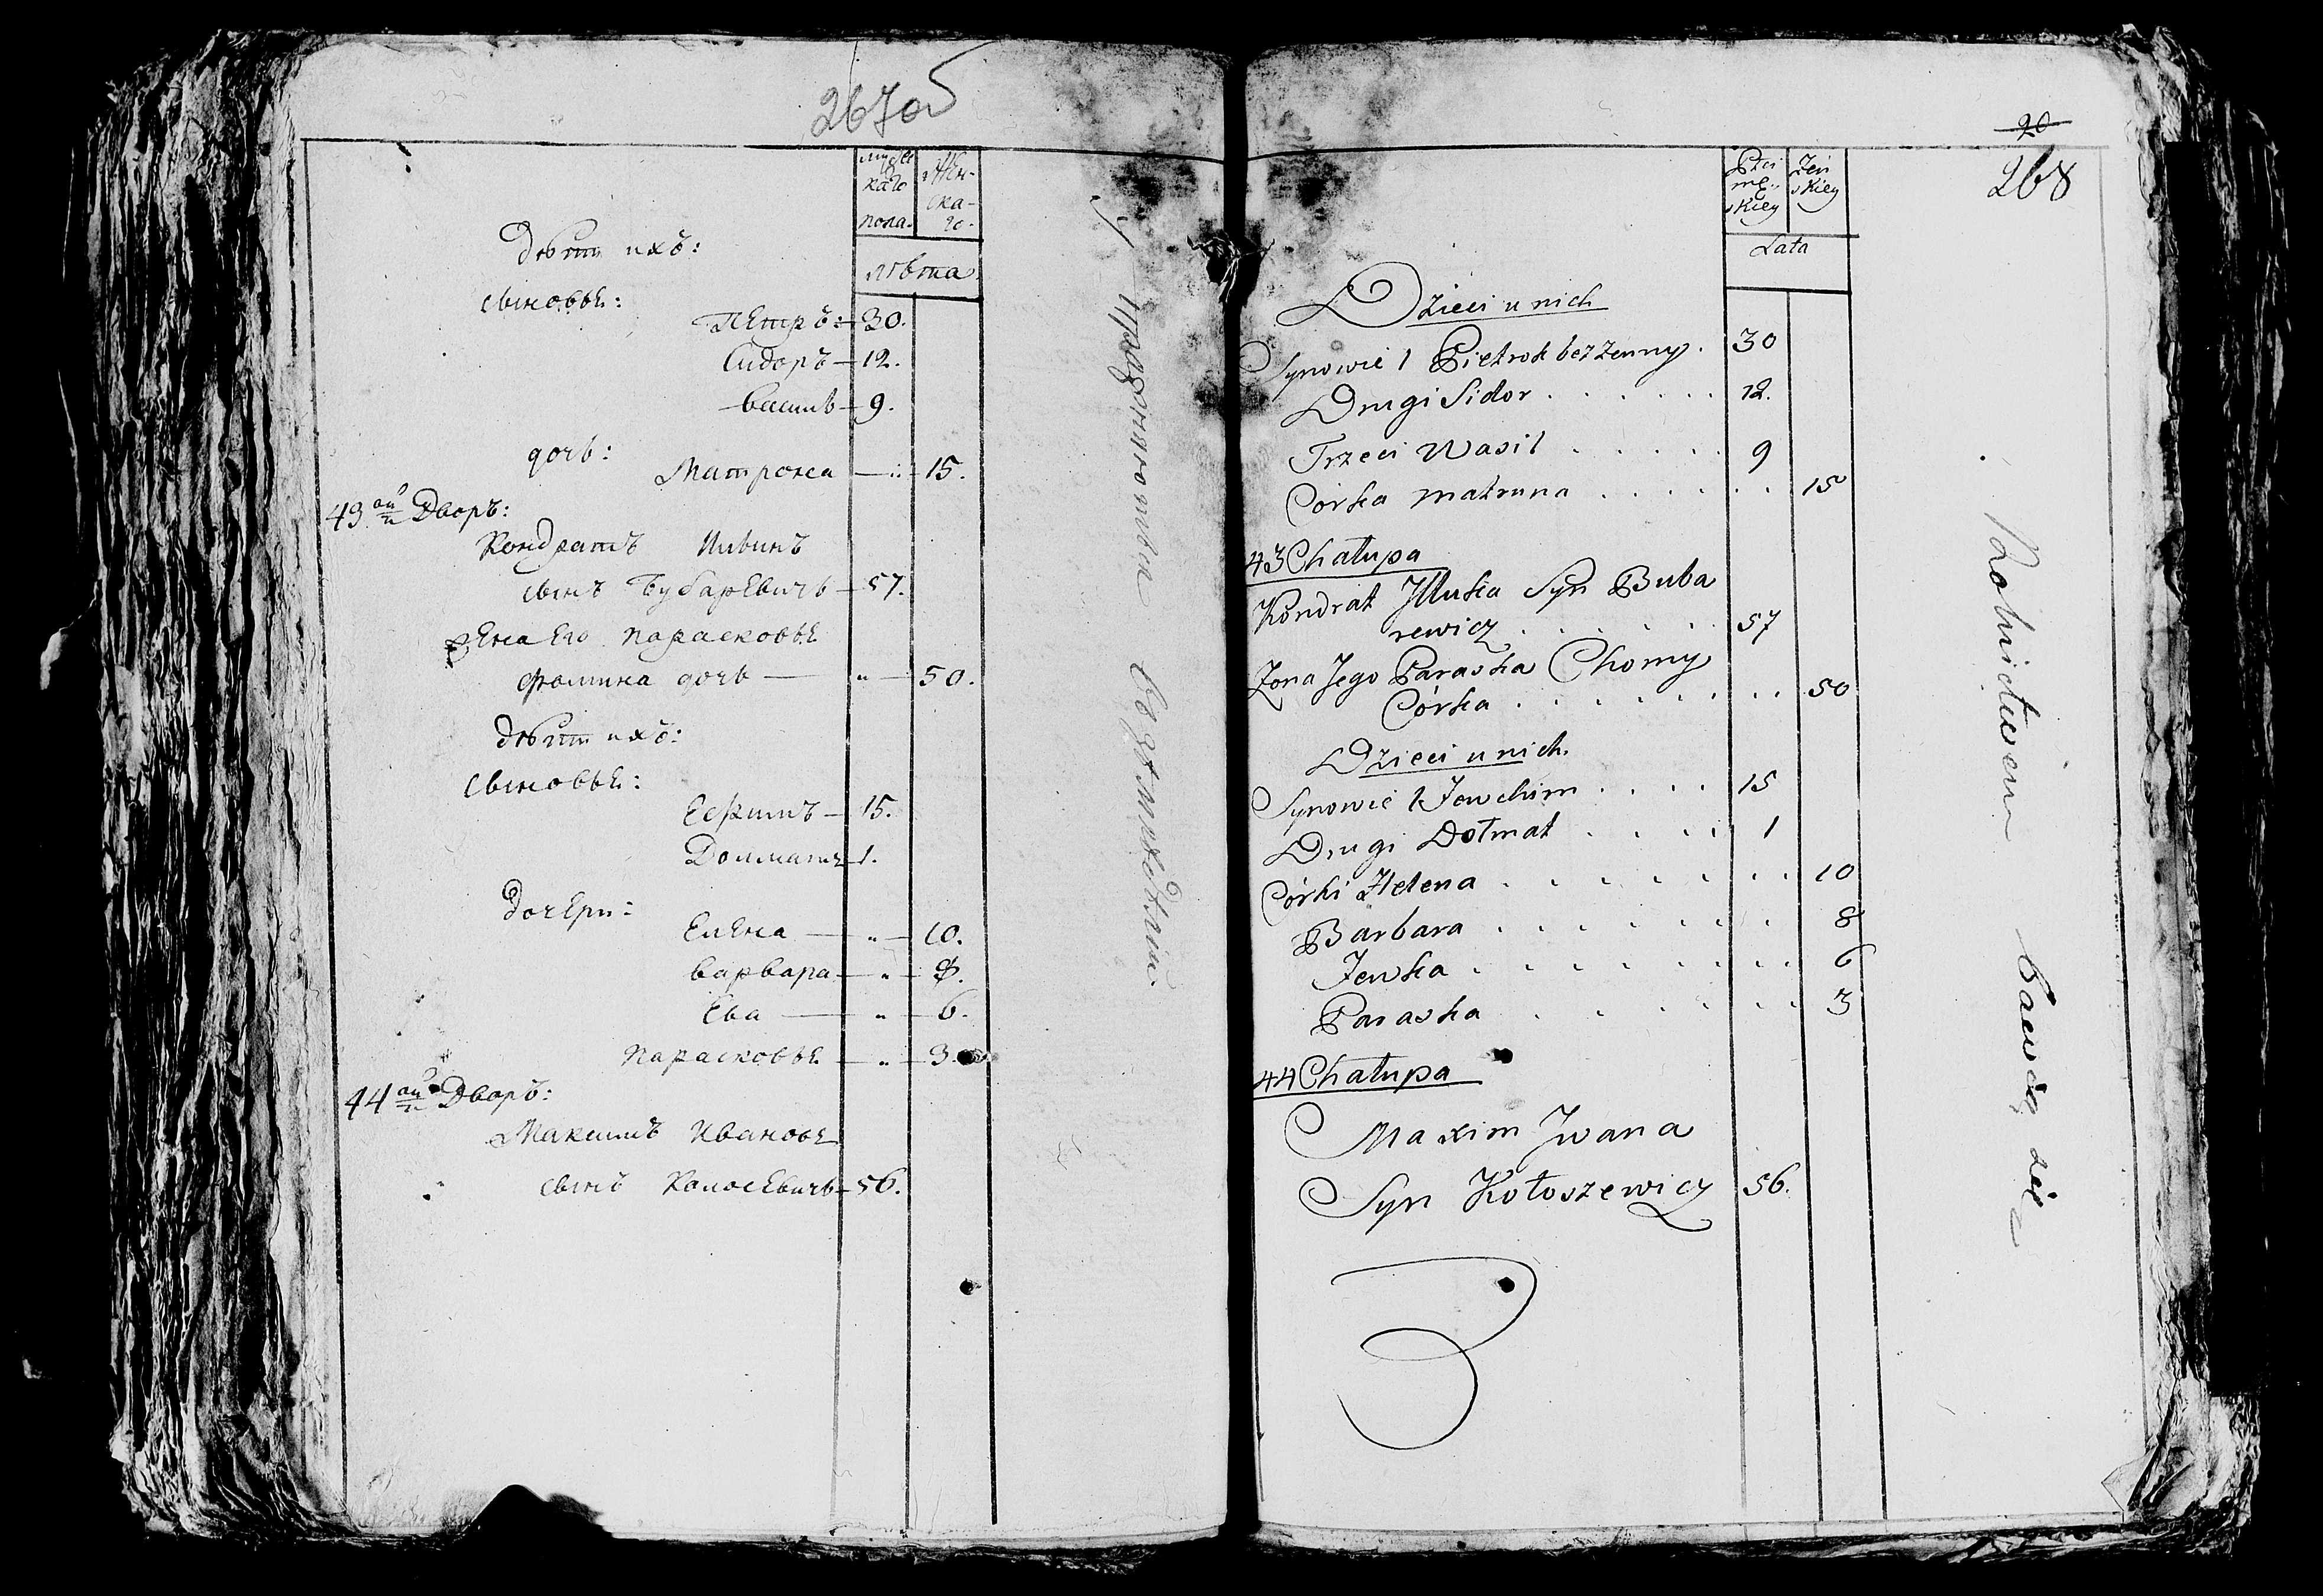 267об
мужс
каго
пола.
Жен-
ска-
го.
лѣта
Дѣти ихъ:
сыновье:
Петръ: 30.
Сидоръ — 12.
Василь — 9.
дочь:
Матрона — 15.
43ой Дворъ:
Кондратъ
сынъ Бубаревичъ — 57.
жена Его Парасковье
Фомина дочь — " — 50.
Дѣти ихъ:
сыновье:
Ефимъ — 15.
Долматъ 1.
Дочери:
Елена — " — 10.
Варвара — " — 8.
Ева — " — 6.
Парасковье — " — 3.
44ой Дворъ:
Максимъ Иванове
сынъ Колосевичъ 56.
20
268
Płci
mę..
skiey
Żeń
skiey
Lata
Dzieci u nich
Synowie 1 Pietrok bezżenny. 30
Drugi Sidor . . . . . . 12.
Trzeci Wasil . . . . . 9
Córka Matruna . . . . . . 15
43 Chałupa
Kondrat Syn Buba
rewicz . . . . . . 57
Żona Jego Paraska Chomy
Córka . . . . . . . . 50
Dzieci u nich.
Synowie 1 Jowchim . . . . 15
Drugi Dołmat . . . . 1
Córki Helena . . . . . . . . 10
Barbara . . . . . . . 8
Jewka . . . . . . . . 6
Paraska . . . . . . 3
44 Chałupa
Maxim Jwana
Syn Kołoszewicz 56.